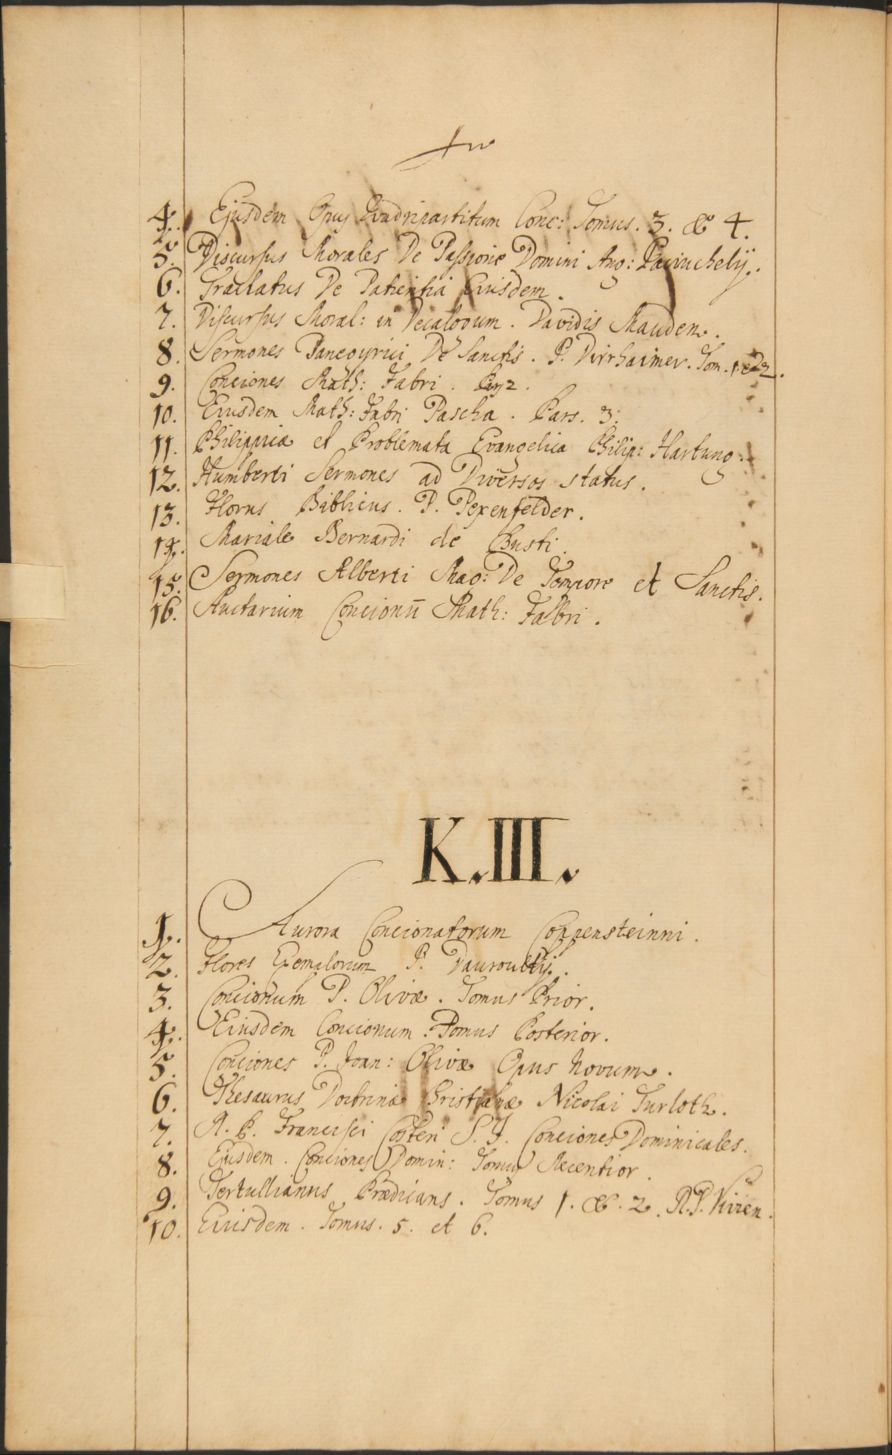 4. Ejusdem Opus Quadripartitum Conc: Tomus. 3. & 4.
5. Discursus Morales De Passione Domini Ang: Paciuchelij.
6. Tractatus De Patientia Eiusdem.
7. Discursus Moral: in Decalogum. Davidis Mauden.
8. Sermones Panegyrici De Sanctis. P. Dirrhaimer. Tom. 1 & 2
9. Conciones Math: Fabri. 2.
10. Eiusdem Math: Fabri Pascha. Pars. 3.
11. Philippicæ et Problemata Evangelica Philip: Hartung.
12. Humberti Sermones ad Diversos status.
13. Florus Biblicus. P. Pexenfelder.
14. Mariale Bernardi de Busti.
15. Sermones Alberti Mag: De Tempore et Sanctis.
16. Auctarium Concionū Math: Fabri.
K.III.
1. Aurora Concionatorum Coppensteinni.
2. Flores Exemplorum P. Dauroultij.
3. Concionum P. Olivæ. Tomus Prior.
4. Eiusdem Concionum. Tomus Posterior.
5. Conciones P. Joan: Olivæ Opus Novum.
6. Thesaurus Doctrinæ Christianæ Nicolai Turloth.
7. R. P. Francisci Costeri S. J. Conciones Dominicales.
8. Ejusdem. Conciones Domin: Tomus Recentior.
9. Tertullianus Prædicans. Tomus 1. &. 2. R. P. Vivien.
10. Eiusdem. Tomus. 5. et 6.